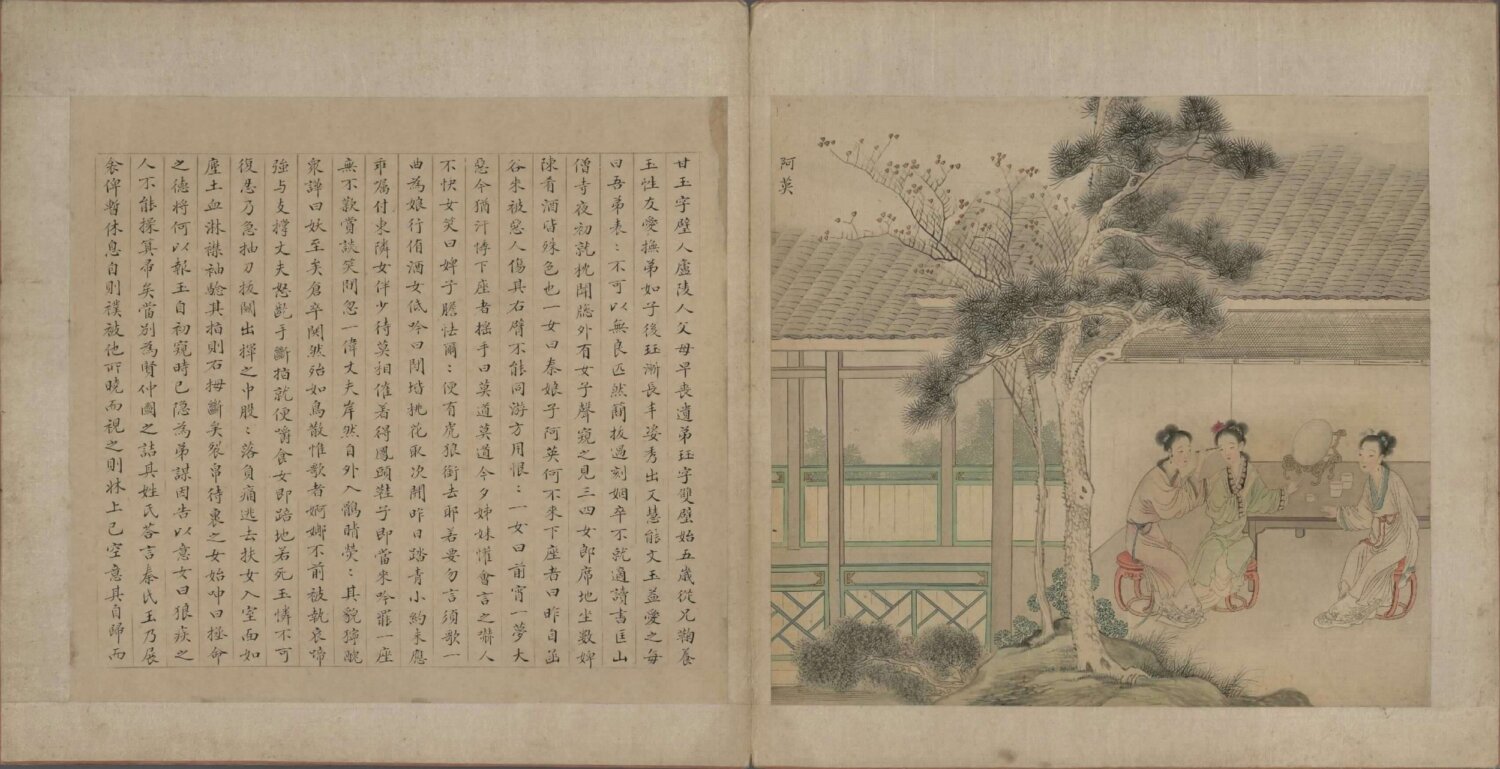 阿英
甘玉字璧人廬陵人父母早喪遺弟珏字雙璧始五歲從兄鞠養
玉性友愛撫弟如子後珏漸長丰姿秀出又慧能文玉益愛之每
曰吾弟表〻不可以無良匹然簡拔過刻姻卒不就適讀書匡山
僧寺夜初就枕聞牕外有女子聲窺之見三四女郎席地坐數婢
陳肴酒皆殊色也一女曰秦娘子阿英何不來下座者曰昨自函
谷來被惡人傷其右臂不能同游方用恨〻一女曰前宵一夢大
惡今猶汗悸下座者搖手曰莫道莫道今夕姊妹懽會言之嚇人
不快女笑曰婢子膽怯爾〻便有虎狼銜去耶若要勿言須歌一
曲為娘行侑酒女低吟曰閒堦桃花取次開昨日踏青小約未應
乖囑付東隣女伴少待莫相催着得鳳頭鞋子即當來吟罷一座
無不歎賞談笑間忽一偉丈夫岸然自外入鶻睛熒〻其貌獰醜
衆譁曰妖至矣倉卒鬨然殆如鳥散惟歌者婀娜不前被執哀啼
強与支撐丈夫怒齕手斷指就便嚼食女即踣地若死玉憐不可
復忍乃急抽刀拔關出揮之中股〻落負痛逃去扶女入室面如
塵土血淋襟袖驗其指則右拇斷矣裂帛待裹之女始呻曰拯命
之德將何以報玉自初窺時已隱為弟謀因告以意女曰狼疾之
人不能操箕帚矣當別為賢仲圖之詰其姓氏荅言秦氏玉乃展
衾俾暫休息自則襆被他所曉而視之則牀上已空意其自歸而